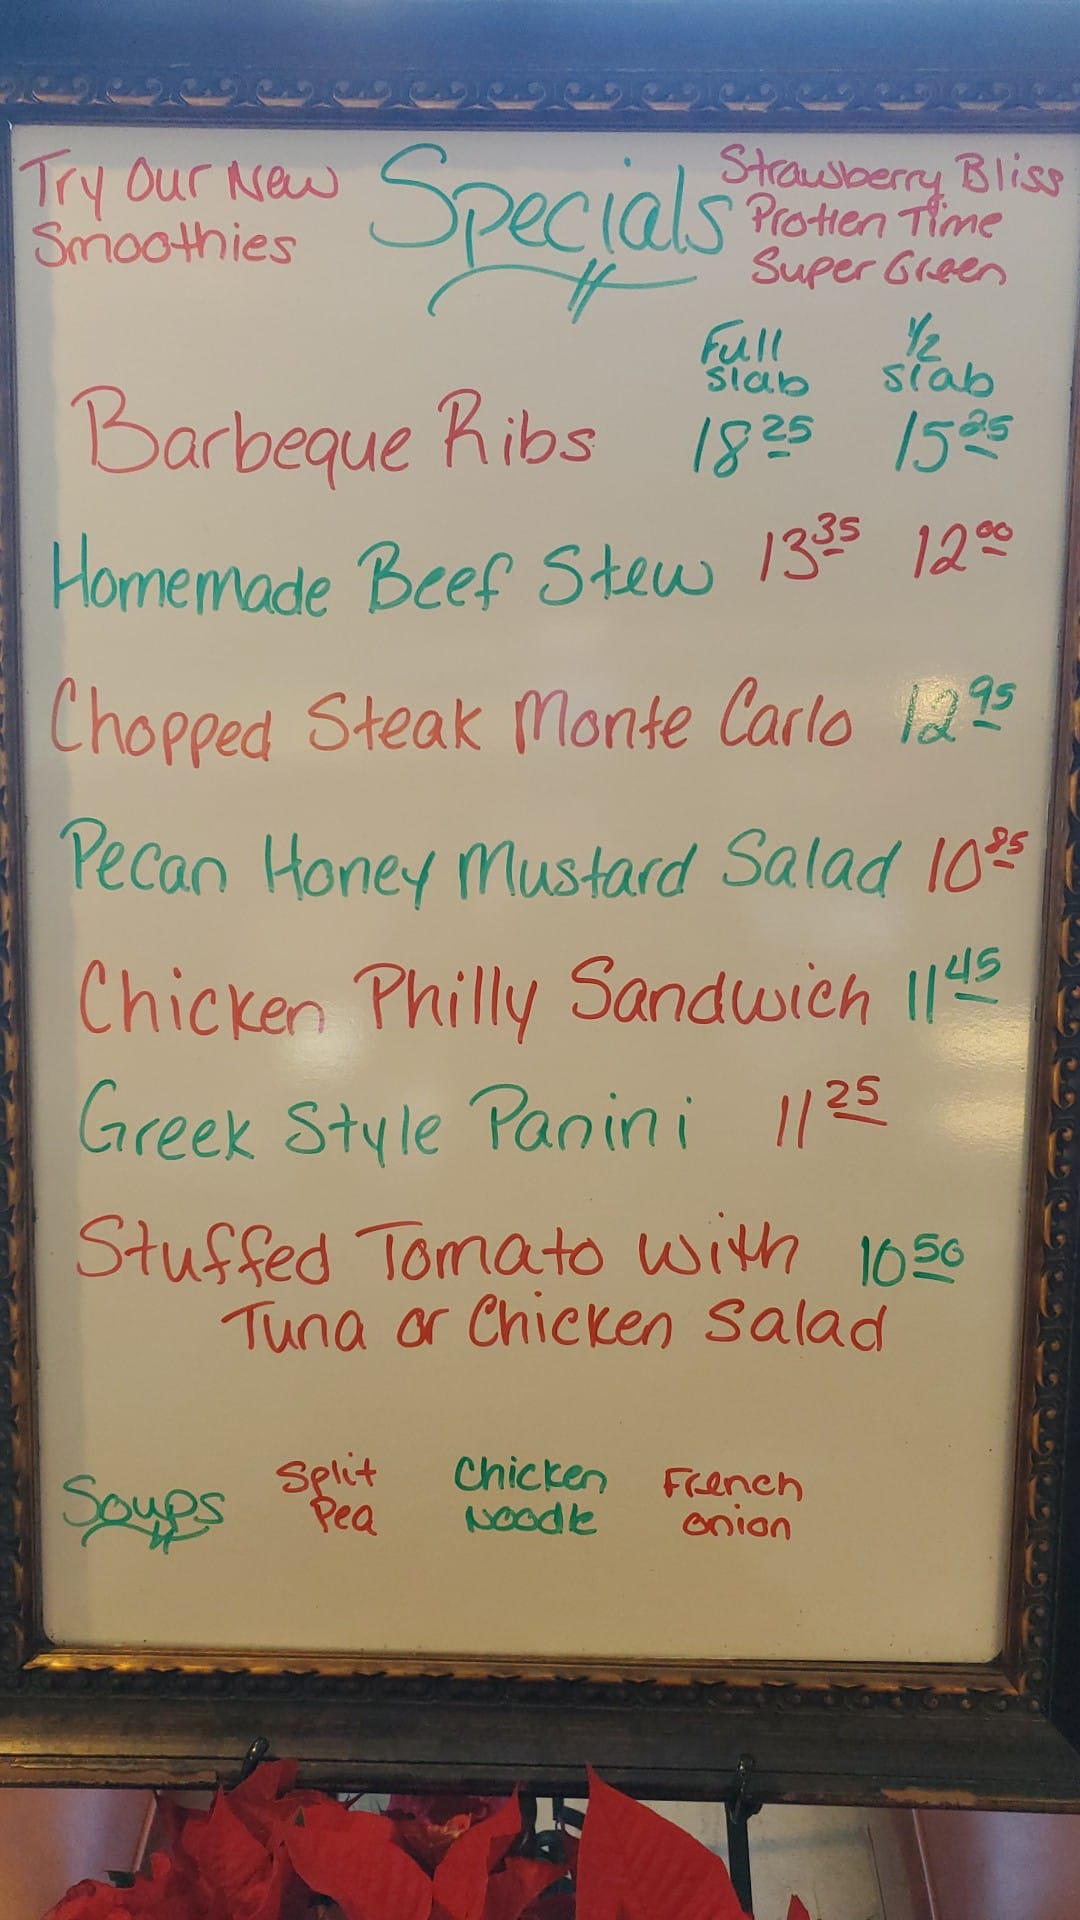 Try Our New
Smoothies
Specials
Strawberry Bliss
Protien Time
Super Green
Full slab
1/2 slab
Barbeque Ribs 18 25 15 25
Homemade Beef Stew 13 35 12 00
Chopped Steak Monte Carlo 12 95
Pecan Honey Mustard Salad 10 85
Chicken Philly Sandwich 11 45
Greek Style Panini 11 25
Stuffed Tomato with 10 50
Tuna or Chicken Salad
Soups
Split
Pea
Chicken
Noodle
French
onion